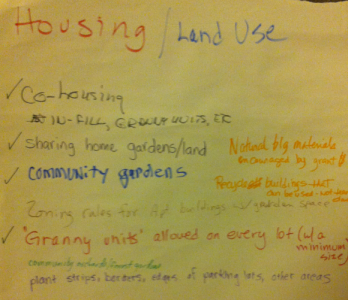 Housing / Land Use
✓ Co-housing
IN-FILL, GROUP UNITS, ETC
✓ Sharing home gardens/land
Natural blg materials
encouraged by grant $
✓ COMMUNITY gardens
Recycled buildings
can be used - not
Zoning rules for Apt buildings w/ garden space
✓ "Granny units" allowed on every lot (w/ a
minimum
size)
community orchards
plant strips, borders, edges of parking lots, other areas